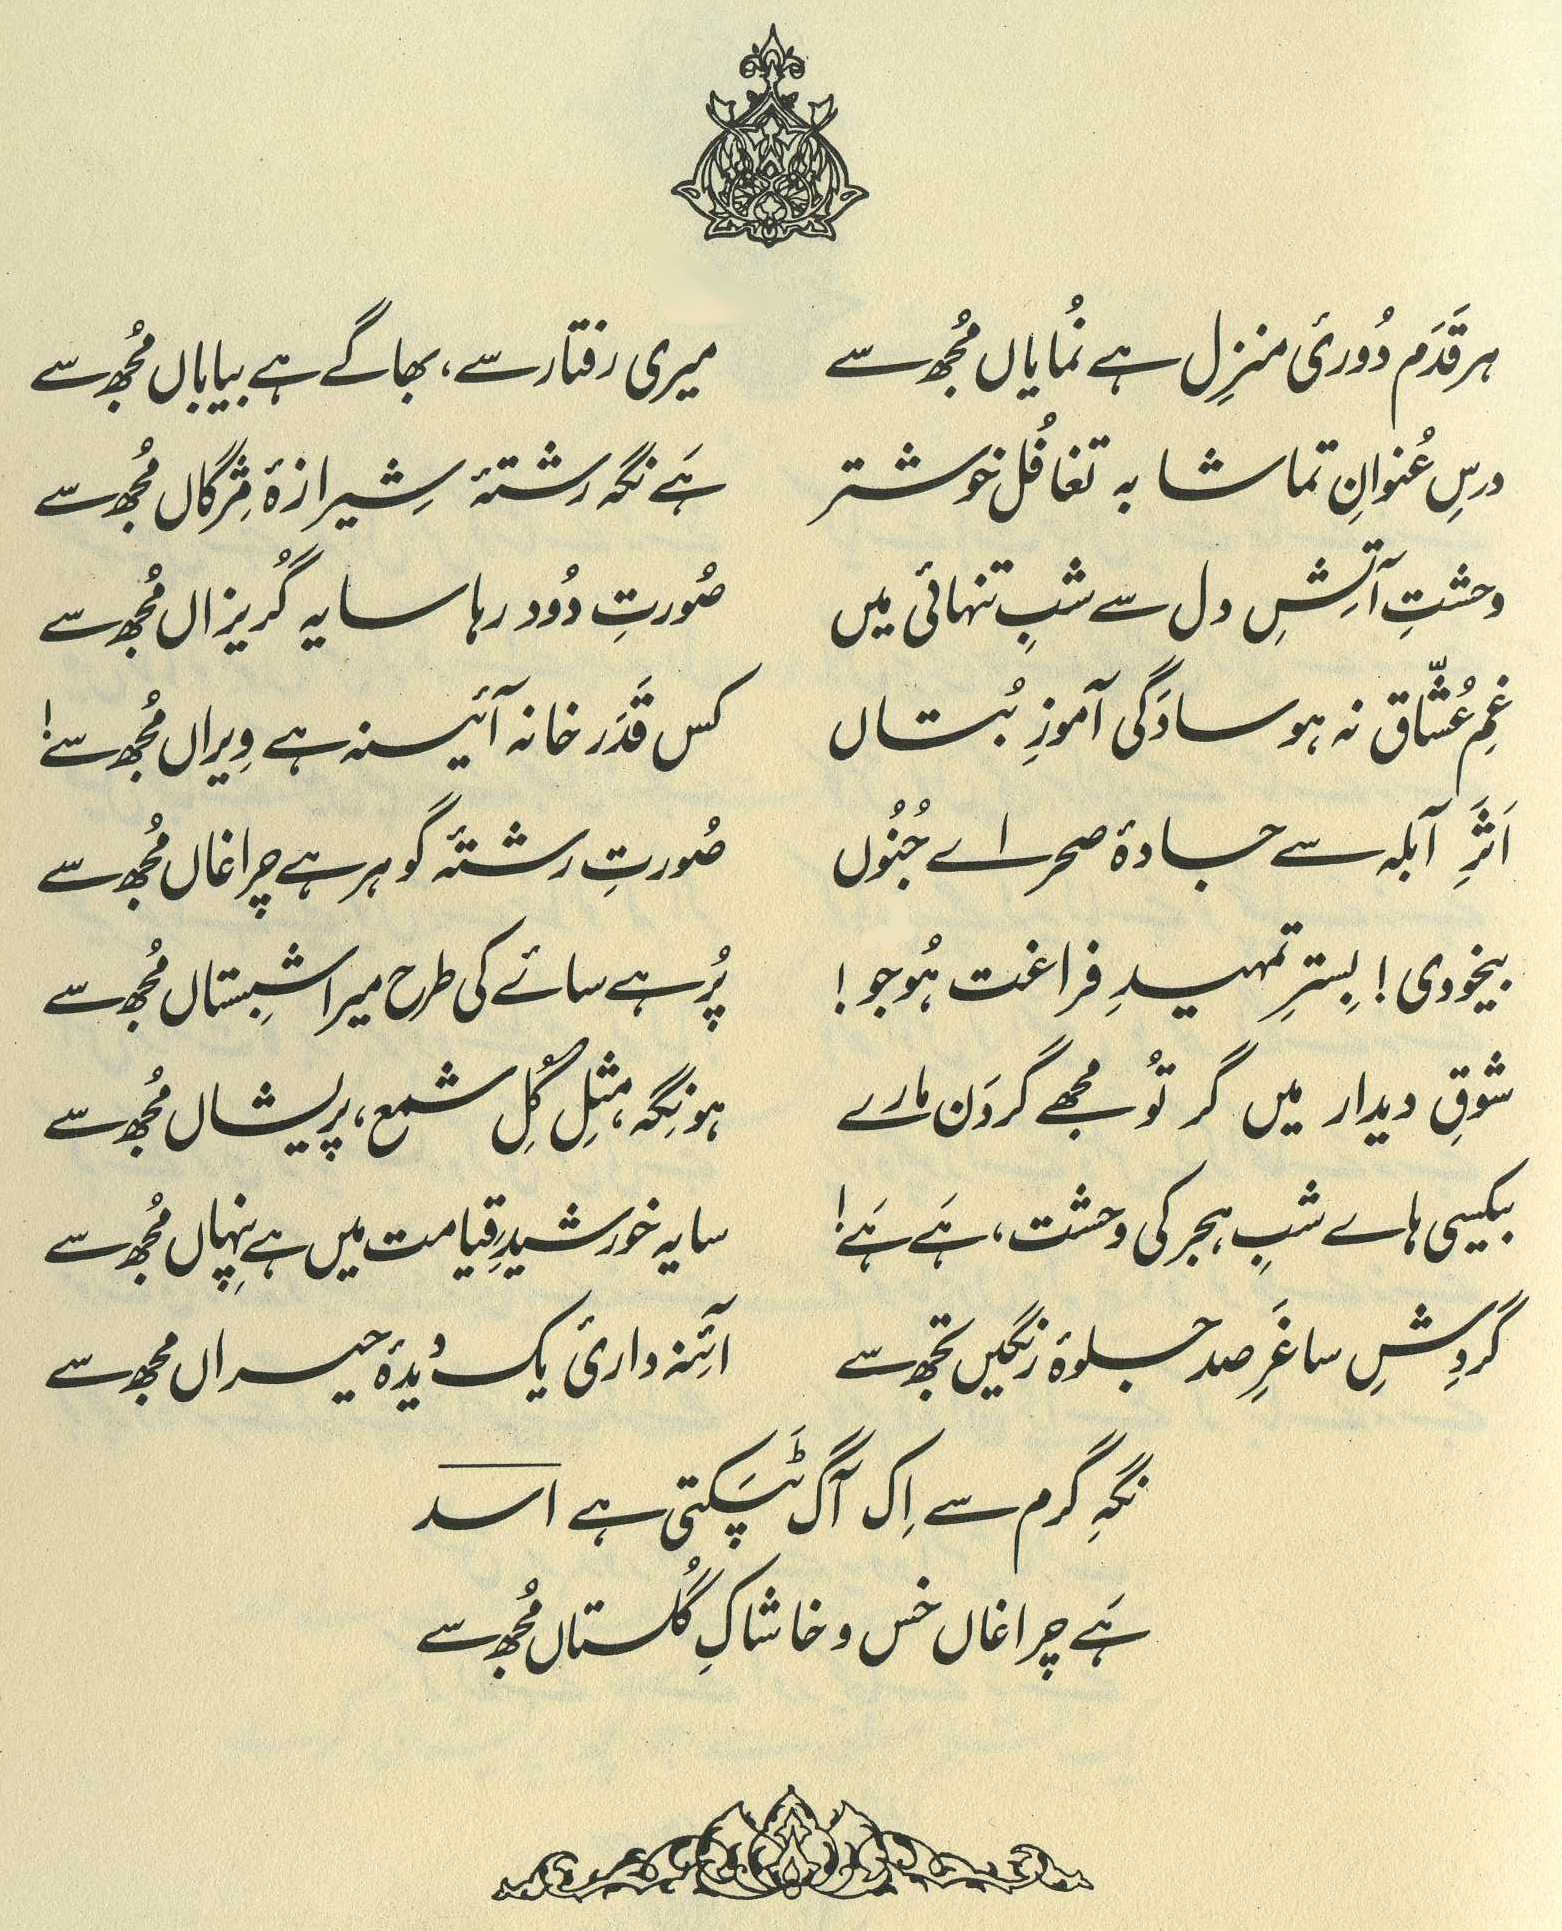 ہر قَدَم دُوریٔ منزِل ہے نُمایاں مُجھ سے
میری رفتار سے، بھاگے ہے بیاباں مُجھ سے
درسِ عُنوانِ تماشا بہ تغافُل خوشتر
ہَے نگہ رشتۂ شِیرازۂ مِژگاں مُجھ سے
وحشتِ آتِشِ دل سے شبِ تنہائی میں
صُورتِ دُود رہا سایہ گُریزاں مُجھ سے
غمِ عُشّاق نہ ہو سادَگی آموزِ بُتاں
کس قَدَر خانہ آئینہ ہے وِیراں مُجھ سے!
اَثَرِ آبلہ سے جادۂ صحراے جُنُوں
صُورتِ رشتۂ گوہر ہے چراغاں مُجھ سے
بیخودی! بِسترِ تمہیدِ فراغت ہُوجو!
پُر ہے سائے کی طرح میرا شِبستاں مُجھ سے
شوقِ دیدار میں گر تُو مجھے گردَن مارے
ہو نِگہ، مثلِ گُلِ شمع، پریشاں مُجھ سے
بیکسی ہاے شبِ ہجر کی وحشت، ہَے ہَے!
سایہ خورشیدِ قِیامت میں ہے پِنہاں مُجھ سے
گردِشِ ساغَرِ صد جلوۂ رنگیں تجھ سے
آئِنہ داریٔ یک دُیدۂ حیراں مجھ سے
نگہِ گرم سے اِک آگ ٹَپَکتی ہے اسد
ہَے چراغاں خس و خاشاکِ گُلستاں مُجھ سے